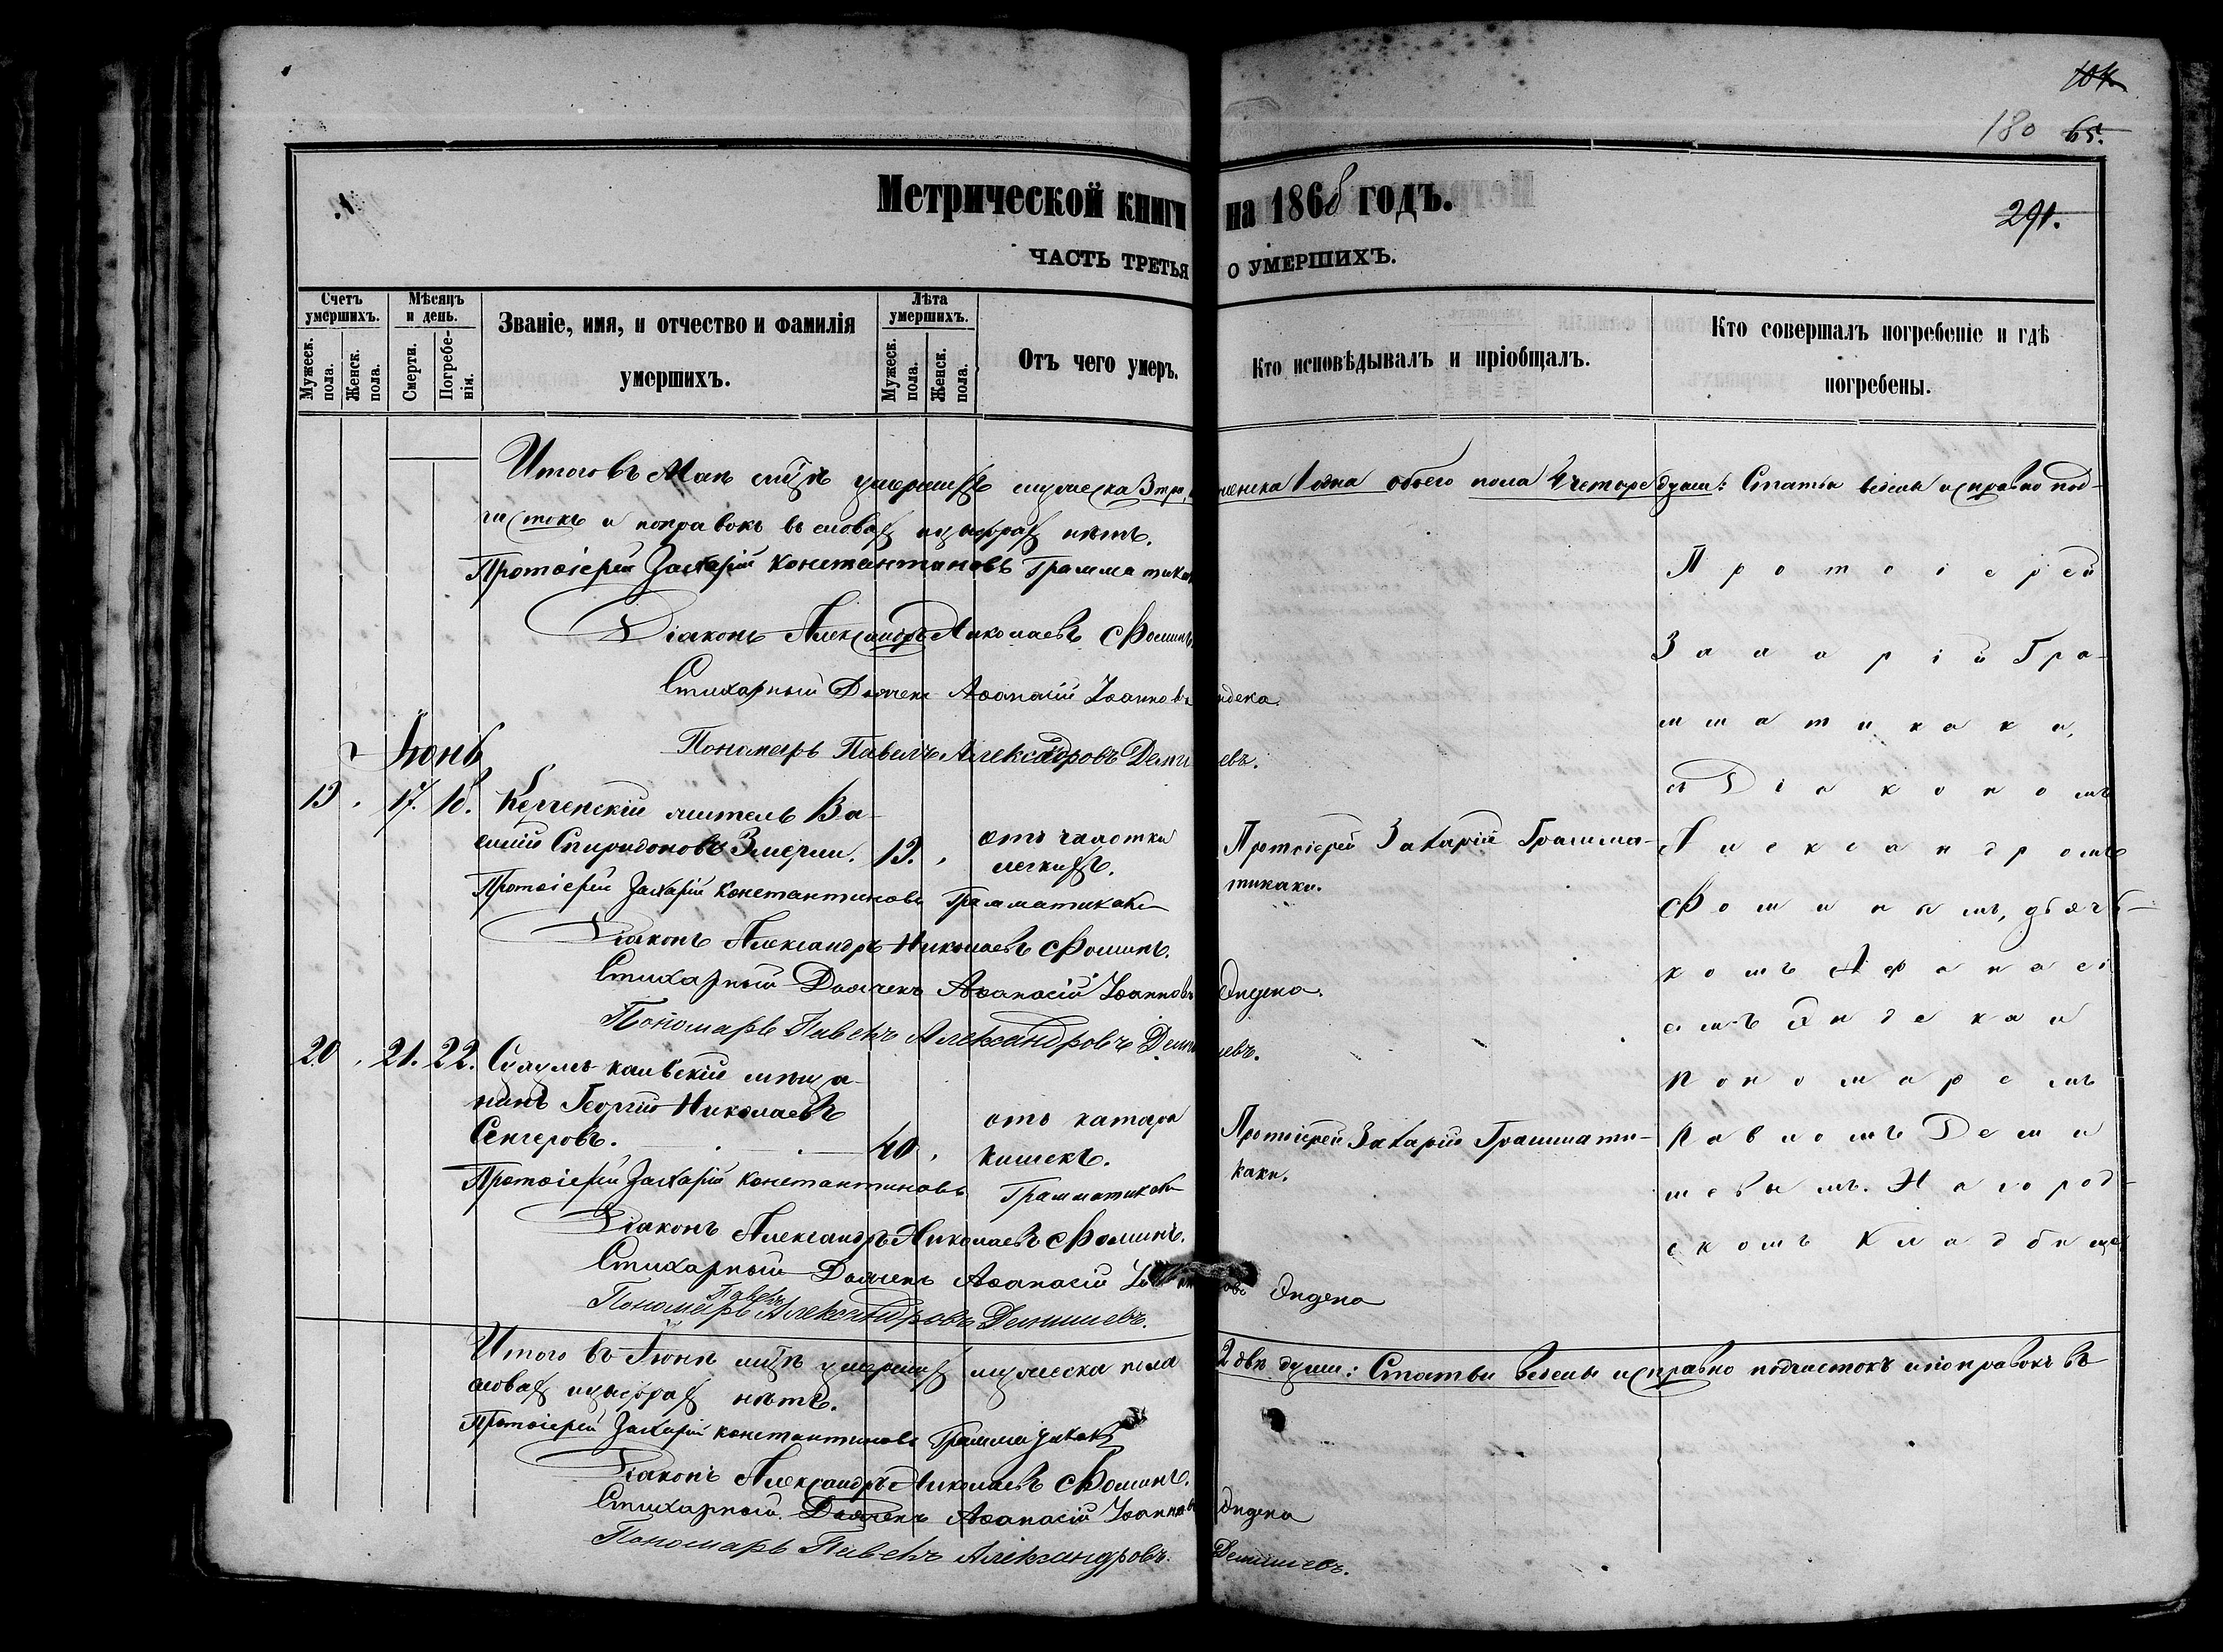 104
180 65.
Метрической книги на 1868 годъ.
291.
ЧАСТЬ ТРЕТЬЯ О УМЕРШИХЪ.
Счетъ умершихъ.
Мужеск. пола.
Женск. пола.
Мѣсяцъ и день.
Смерти.
Погребенія.
Званіе, имя, и отчество и фамилія умершихъ.
Лѣта умершихъ.
Мужеск. пола.
Женск. пола.
Отъ чего умеръ.
Кто исповѣдывалъ и пріобщалъ.
Кто совершалъ погребеніе и гдѣ погребены.
Итого въ Маѣ мцѣ умершихъ мужеска 3 три, женска 1 одна обоего пола 4 четыре души: Статьи ведены исправно под-
чистокъ и поправокъ въ словахъ и цыфрахъ нѣтъ.
Протоіерей Захарій Константиновъ Грамматикаки
Діаконъ Александръ Николаевъ Фоминъ
Стихарный Дьячекъ Аѳанасій Іоанновъ Эндека.
Пономарь Павелъ Александровъ Демишевъ.
Іюнь
19. 17. 18. Керченскій житель Ва-
силій Спиридоновъ Змерли. 19. отъ чахотки
легкихъ.
Протоіерей Захарій Грамма-
тикаки.
Протоіерей Захарій Константиновъ Грамматикаки
Діаконъ Александръ Николаевъ Фоминъ.
Стихарный Дьячекъ Аѳанасій Іоанновъ Эндека.
Пономарь Павелъ Александровъ Демишевъ.
20. 21. 22. мѣща-
нинъ Георгій Николаевъ
40. отъ катара
кишекъ.
Протоіерей Захарій Граммати-
каки.
Протоіерей Захарій Константиновъ Грамматикаки
Діаконъ Александръ Николаевъ Фоминъ.
Стихарный Дьячекъ Аѳанасій Іоанновъ Эндека
Пономарь Павелъ Александровъ Демишевъ.
Протоіерей
Захарій Гра-
мматикаки,
съ Діакономъ
Александромъ
Фоминымъ, дьяч-
комъ Афанасі-
емъ Эндекаи
Пономаремъ
Павломъ Деми
шевымъ. На город-
скомъ Кладбищѣ
Итого въ Іюнѣ мцѣ умершихъ мужеска пола 2 двѣ души: Статьи ведены исправно подчистокъ и поправокъ въ
словахъ и цыфрахъ нѣтъ.
Протоіерей Захарій Константиновъ Грамматикаки
Діаконъ Александръ Николаевъ Фоминъ.
Стихарный Дьячекъ Аѳанасій Іоанновъ Эндека
Пономарь Павелъ Александровъ Демишевъ.